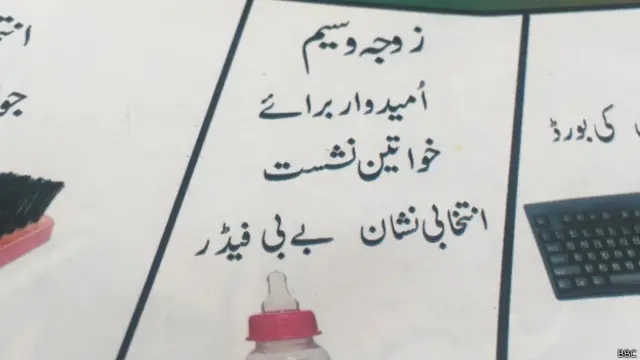 زوجہ وسیم
اُمیدوار برائے
خواتین نشست
انتخابی نشان بے بی فیڈر
کی بورڈ
BBC